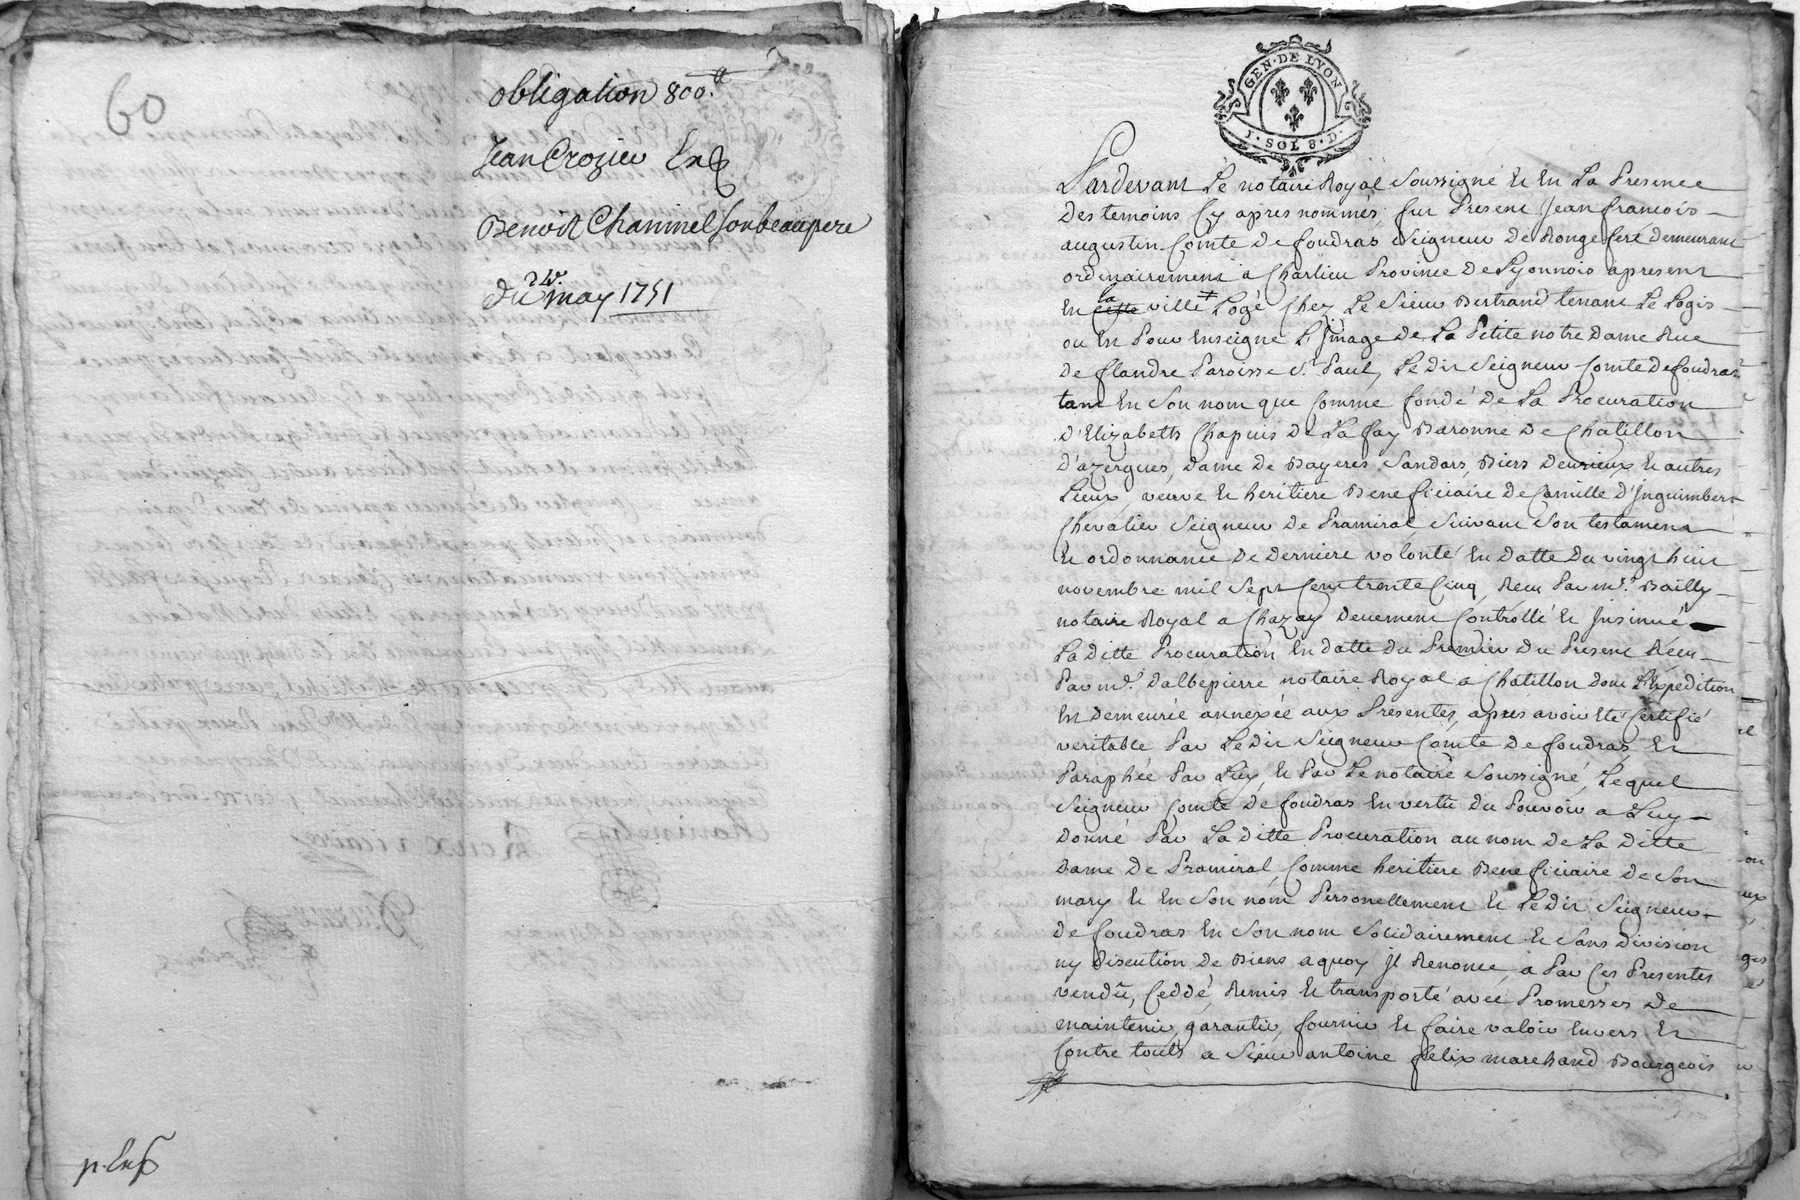 60
obligation 800.ᵗᵗ
Jean Crozier
Benoit Chaninel son beaupere
du 24. may 1751
p. Exp
GEN·DE LYON
1·SOL 8·D·
Pardevant Le notaire Royal soussigné et En La Presence
Des temoins Cy apres nommés, fut Present Jean francois
augustin Comte De foudras Seigneur De Rongefere demeurant
ordinairement a Charlieu Province De Lyonnois apresent
En cette la ville Logé Chez Le sieur Bertrand tenant Le Logis
ou En Pour Enseigne L'Jmage de La Petite notre Dame Rue
De flandre Paroisse St Paul, Ledit Seigneur Comte De foudras
tant En Son nom que Comme fondé De La Procuration
D'Elizabeth Chapuis De La fay Baronne De Chatillon
D'azergues, Dame De Bayeres Sandars, Biers Deurieux et autres
Lieux, veuve et heritiere Beneficiaire De Camille D'Jnguimbert
Chevalier Seigneur De Pramiral, Suivant Son testament
Et ordonnance De Derniere volonté En Datte Du vingt huit
novembre mil Sept Cent trente Cinq, Recu Par me. Bailly
notaire Royal a Chazay Deuement Controllé et Jnsinué
La Ditte Procuration En Datte du Premier Du Present Recu
Par me. Dalbepierre notaire Royal a Chatillon Dont L'Expedition
Est Demeurée annexée aux Presentes, apres avoir Eté Certifié
veritable Par Ledit Seigneur Comte De foudras, Et
Paraphée Par Luy, et Par Le notaire Soussigné, Lequel
Seigneur Comte De foudras En vertu Du Pouvoir a Luy
Donné Par La Ditte Procuration au nom De La Ditte
Dame De Pramiral, Comme heritiere Beneficiaire De Son
mary et En Son nom Personellement et Ledit Seigneur
De foudras En Son nom Solidairement et Sans Division
ny Discution De Biens a quoy Jl Renonce, a Par Ces Presentes
vendu, Ceddé, Remis et transporté avec Promesses De
maintenir, garantir, fournir et faire valoir Envers et
Contre touts a Sieur antoine felix marchand Bourgeois